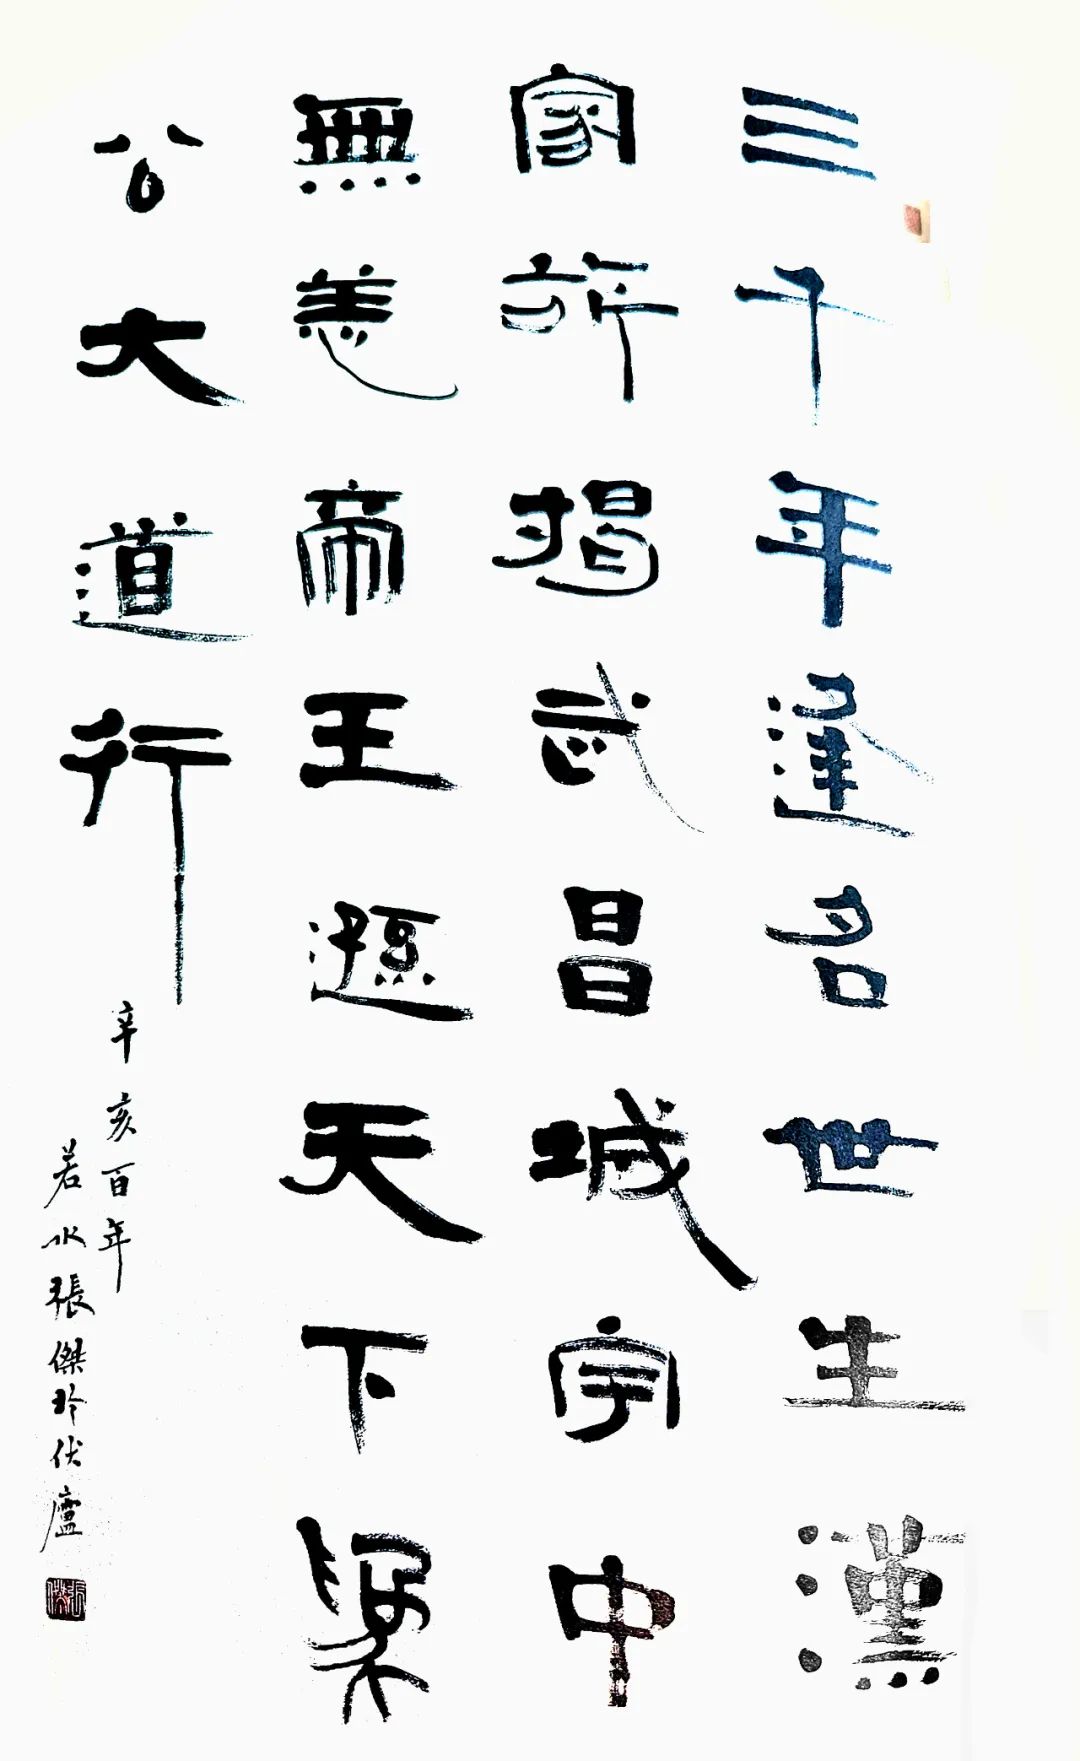 三千年逢名世生漢
家許揭武昌城宇中
無恙帝王遜天下爲
公大道行
辛亥百年
若水張傑於伏廬